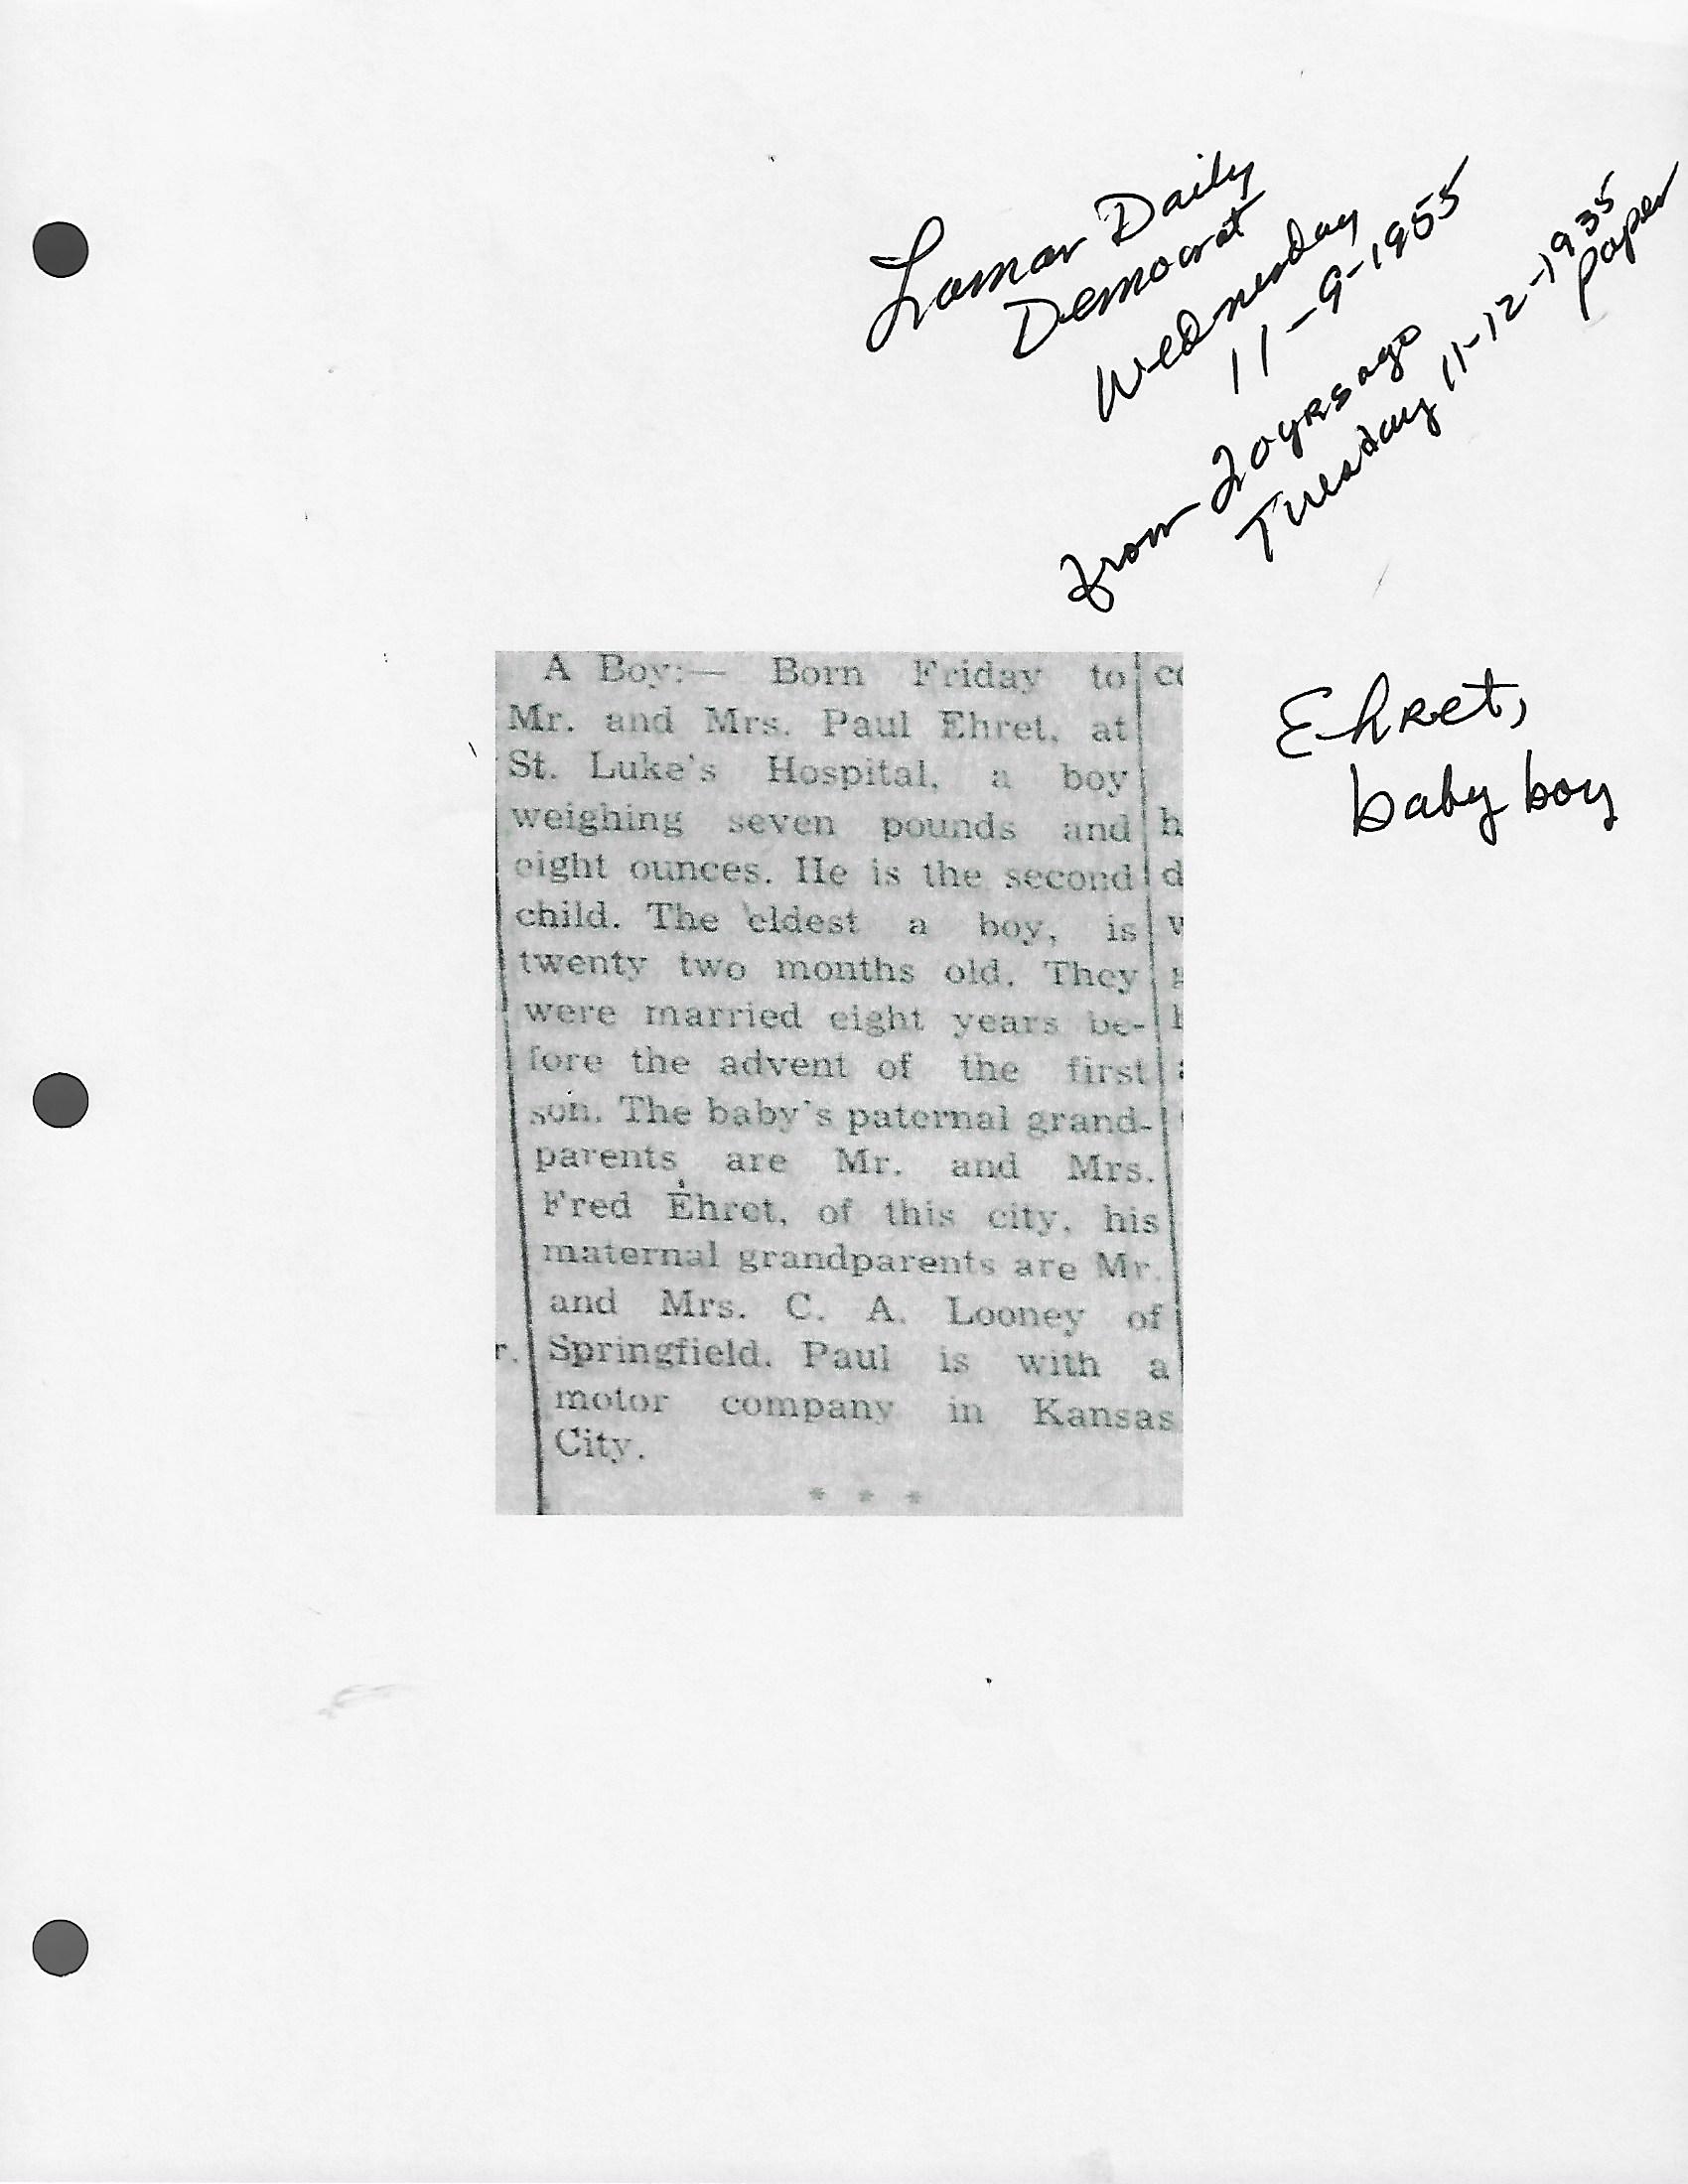 Lamar Daily
Democrat
Wednesday
11-9-1955
from 20yrs ago
Tuesday 11-12-1935
paper
Ehret,
baby boy
A Boy:— Born Friday to
Mr. and Mrs. Paul Ehret, at
St. Luke's Hospital, a boy
weighing seven pounds and
eight ounces. He is the second
child. The eldest a boy, is
twenty two months old. They
were married eight years be-
fore the advent of the first
son. The baby's paternal grand-
parents are Mr. and Mrs.
Fred Ehret, of this city, his
maternal grandparents are Mr.
and Mrs. C. A. Looney of
Springfield. Paul is with a
motor company in Kansas
City.
* * *